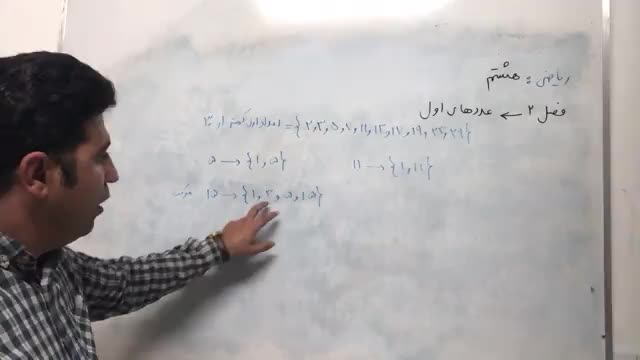 ریاضی: هشتم
فصل ۲ ← عددهای اول
اعداد اول کمتر از ۳۰ = {۲,۳,۵,۷,۱۱,۱۳,۱۷,۱۹,۲۳,۲۹}
۵ → {۱,۵}
۱۱ → {۱,۱۱}
مرکب ۱۵ → {۱,۳,۵,۱۵}